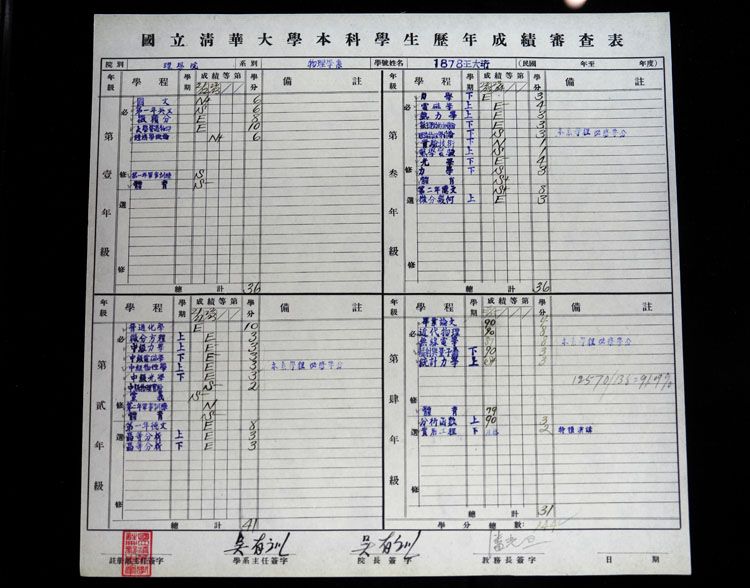 國立清華大學本科學生歷年成績審查表
院別 理學院 系別 物理學系 學號姓名 1878王大珩 (民國 年至 年度)
年級 學程 學期 成績等第 學分 備註
第壹年級
必修
國文 N+ 6
第一年英文 S 6
微積分 E 8
大學普通物理 E 10
經濟學概論 N+ 6
第一年軍事訓練 S
體育 S-
選修
總計 36
年級 學程 學期 成績等第 學分 備註
第叁年級
必修
力學 下 E 3
電磁學 上 E 4
熱力學 上 E 3
S 3 本系學程 供給學分
實驗技術 N 1
上 N 1
光學 下 E 4
力學 上 S 3
體育 S+
第二年德文 S+ 8
選修
微分幾何 上 E 3
總計 36
年級 學程 學期 成績等第 學分 備註
第貳年級
必修
普通化學 E 10
微分方程 上 E 3
中級力學 上 E 3
中級電磁學 下 E 3
中級物性學 上 E 3 本系學程 供給學分
中級光學 下 E 3
中級物理實驗 S 2
黨義 S-
第二年軍事訓練 N
體育 S-
第一年德文 E 8
選修
高等分析 上 E 3
高等分析 下 E 3
總計 41
年級 學程 學期 成績等第 學分 備註
第肆年級
必修
畢業論文 90
近代物理 8
無線電學 本系學程 供給學分
下 90 3
統計力學 上 3
體育 79
選修
分析函數 上 90 3
實用工程 下 2 特種演講
總計 31
學分總數: 144
註冊部主任簽字 學系主任簽字 吳有訓 院長簽字 吳有訓 教務長簽字 潘光旦 日期